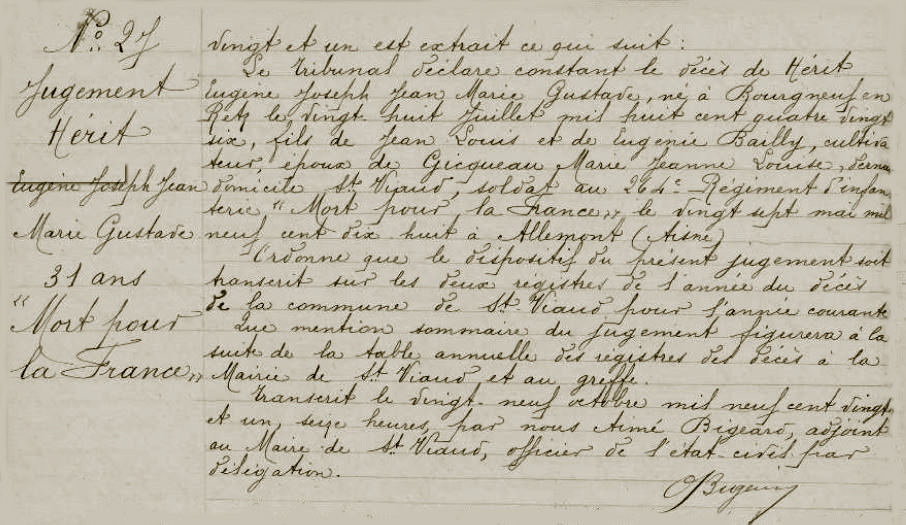 No 27
Jugement
Hérit
Eugène Joseph Jean
Marie Gustave
31 ans
"Mort pour
la France"
vingt et un est extrait ce qui suit :
Le Tribunal déclare constant le décès de Hérit
Eugène Joseph Jean Marie Gustave, né à Bourgneuf en
Retz le vingt huit Juillet mil huit cent quatre vingt
six, fils de Jean Louis et de Eugénie Bailly, cultiva
teur, époux de Gicqueau Marie Jeanne Louise, dernier
domicile St Viaud, soldat au 264e Régiment d'infan
terie, "Mort pour la France" le vingt sept mai mil
neuf cent dix huit à Allemont (Aisne)
Ordonne que le dispositif du présent jugement soit
transcrit sur les deux régistres de l'année du décès
de la commune de St Viaud pour l'année courante
Que mention sommaire du jugement figurera à la
suite de la table annuelle des régistres des décès à la
Mairie de St Viaud et au greffe.
Transcrit le vingt-neuf octobre mil neuf cent vingt
et un, seize heures, par nous Aimé Bigeard, adjoint
au Maire de St Viaud, officier de l'état-civil par
délégation.